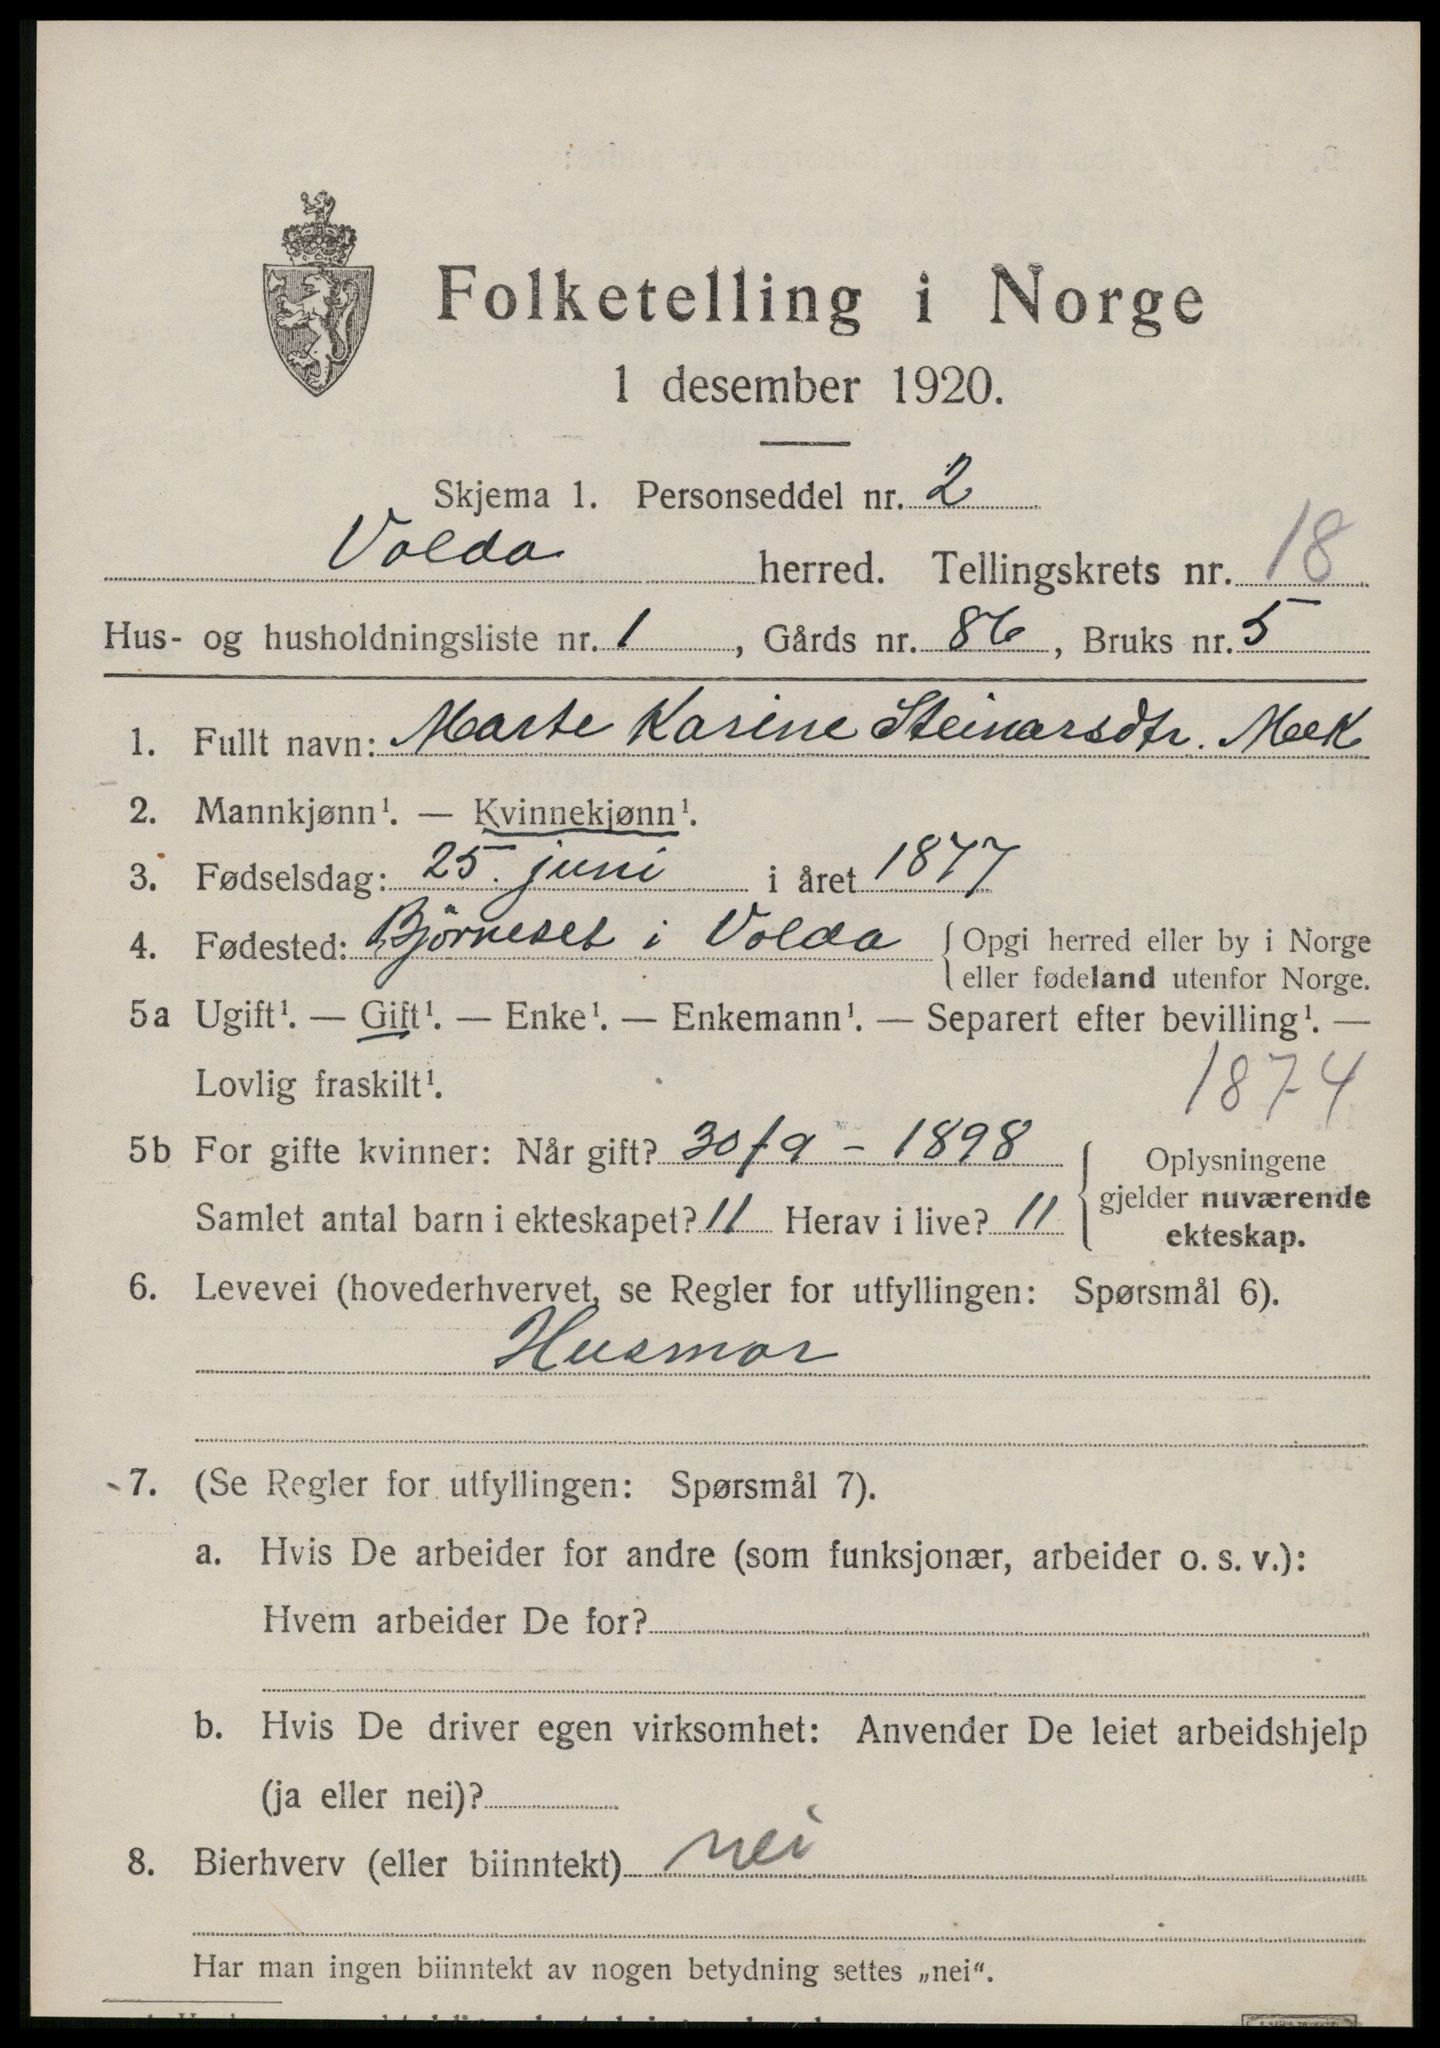 Folketelling i Norge
1 desember 1920.
Skjema 1. Personseddel nr. 2
Volda herred. Tellingskrets nr. 18
Hus- og husholdningsliste nr. 1, Gårds nr. 86, Bruks nr. 5
1. Fullt navn: Marte Karine Steinarsdtr. Mek
2. Mannkjønn¹. — Kvinnekjønn¹.
3. Fødselsdag: 25. juni i året 1877
4. Fødested: Björneset i Volda { Opgi herred eller by i Norge
eller fødeland utenfor Norge.
5a Ugift¹. — Gift¹. — Enke¹. — Enkemann¹. — Separert efter bevilling¹. —
Lovlig fraskilt¹. 1874
5b For gifte kvinner: Når gift? 30/9 - 1898
Samlet antal barn i ekteskapet? 11 Herav i live? 11
{ Oplysningene
gjelder nuværende
ekteskap.
6. Levevei (hovederhvervet, se Regler for utfyllingen: Spørsmål 6).
Husmor
7. (Se Regler for utfyllingen: Spørsmål 7).
a. Hvis De arbeider for andre (som funksjonær, arbeider o. s. v.):
Hvem arbeider De for?
b. Hvis De driver egen virksomhet: Anvender De leiet arbeidshjelp
(ja eller nei)?
8. Bierhverv (eller biinntekt) nei
Har man ingen biinntekt av nogen betydning settes „nei“.